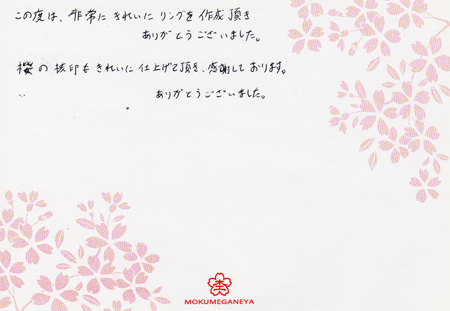 この度は、非常にきれいにリングを作成頂き
ありがとうございました。
櫻の刻印もきれいに仕上げて頂き、感謝しております。
ありがとうございました。
MOKUMEGANEYA